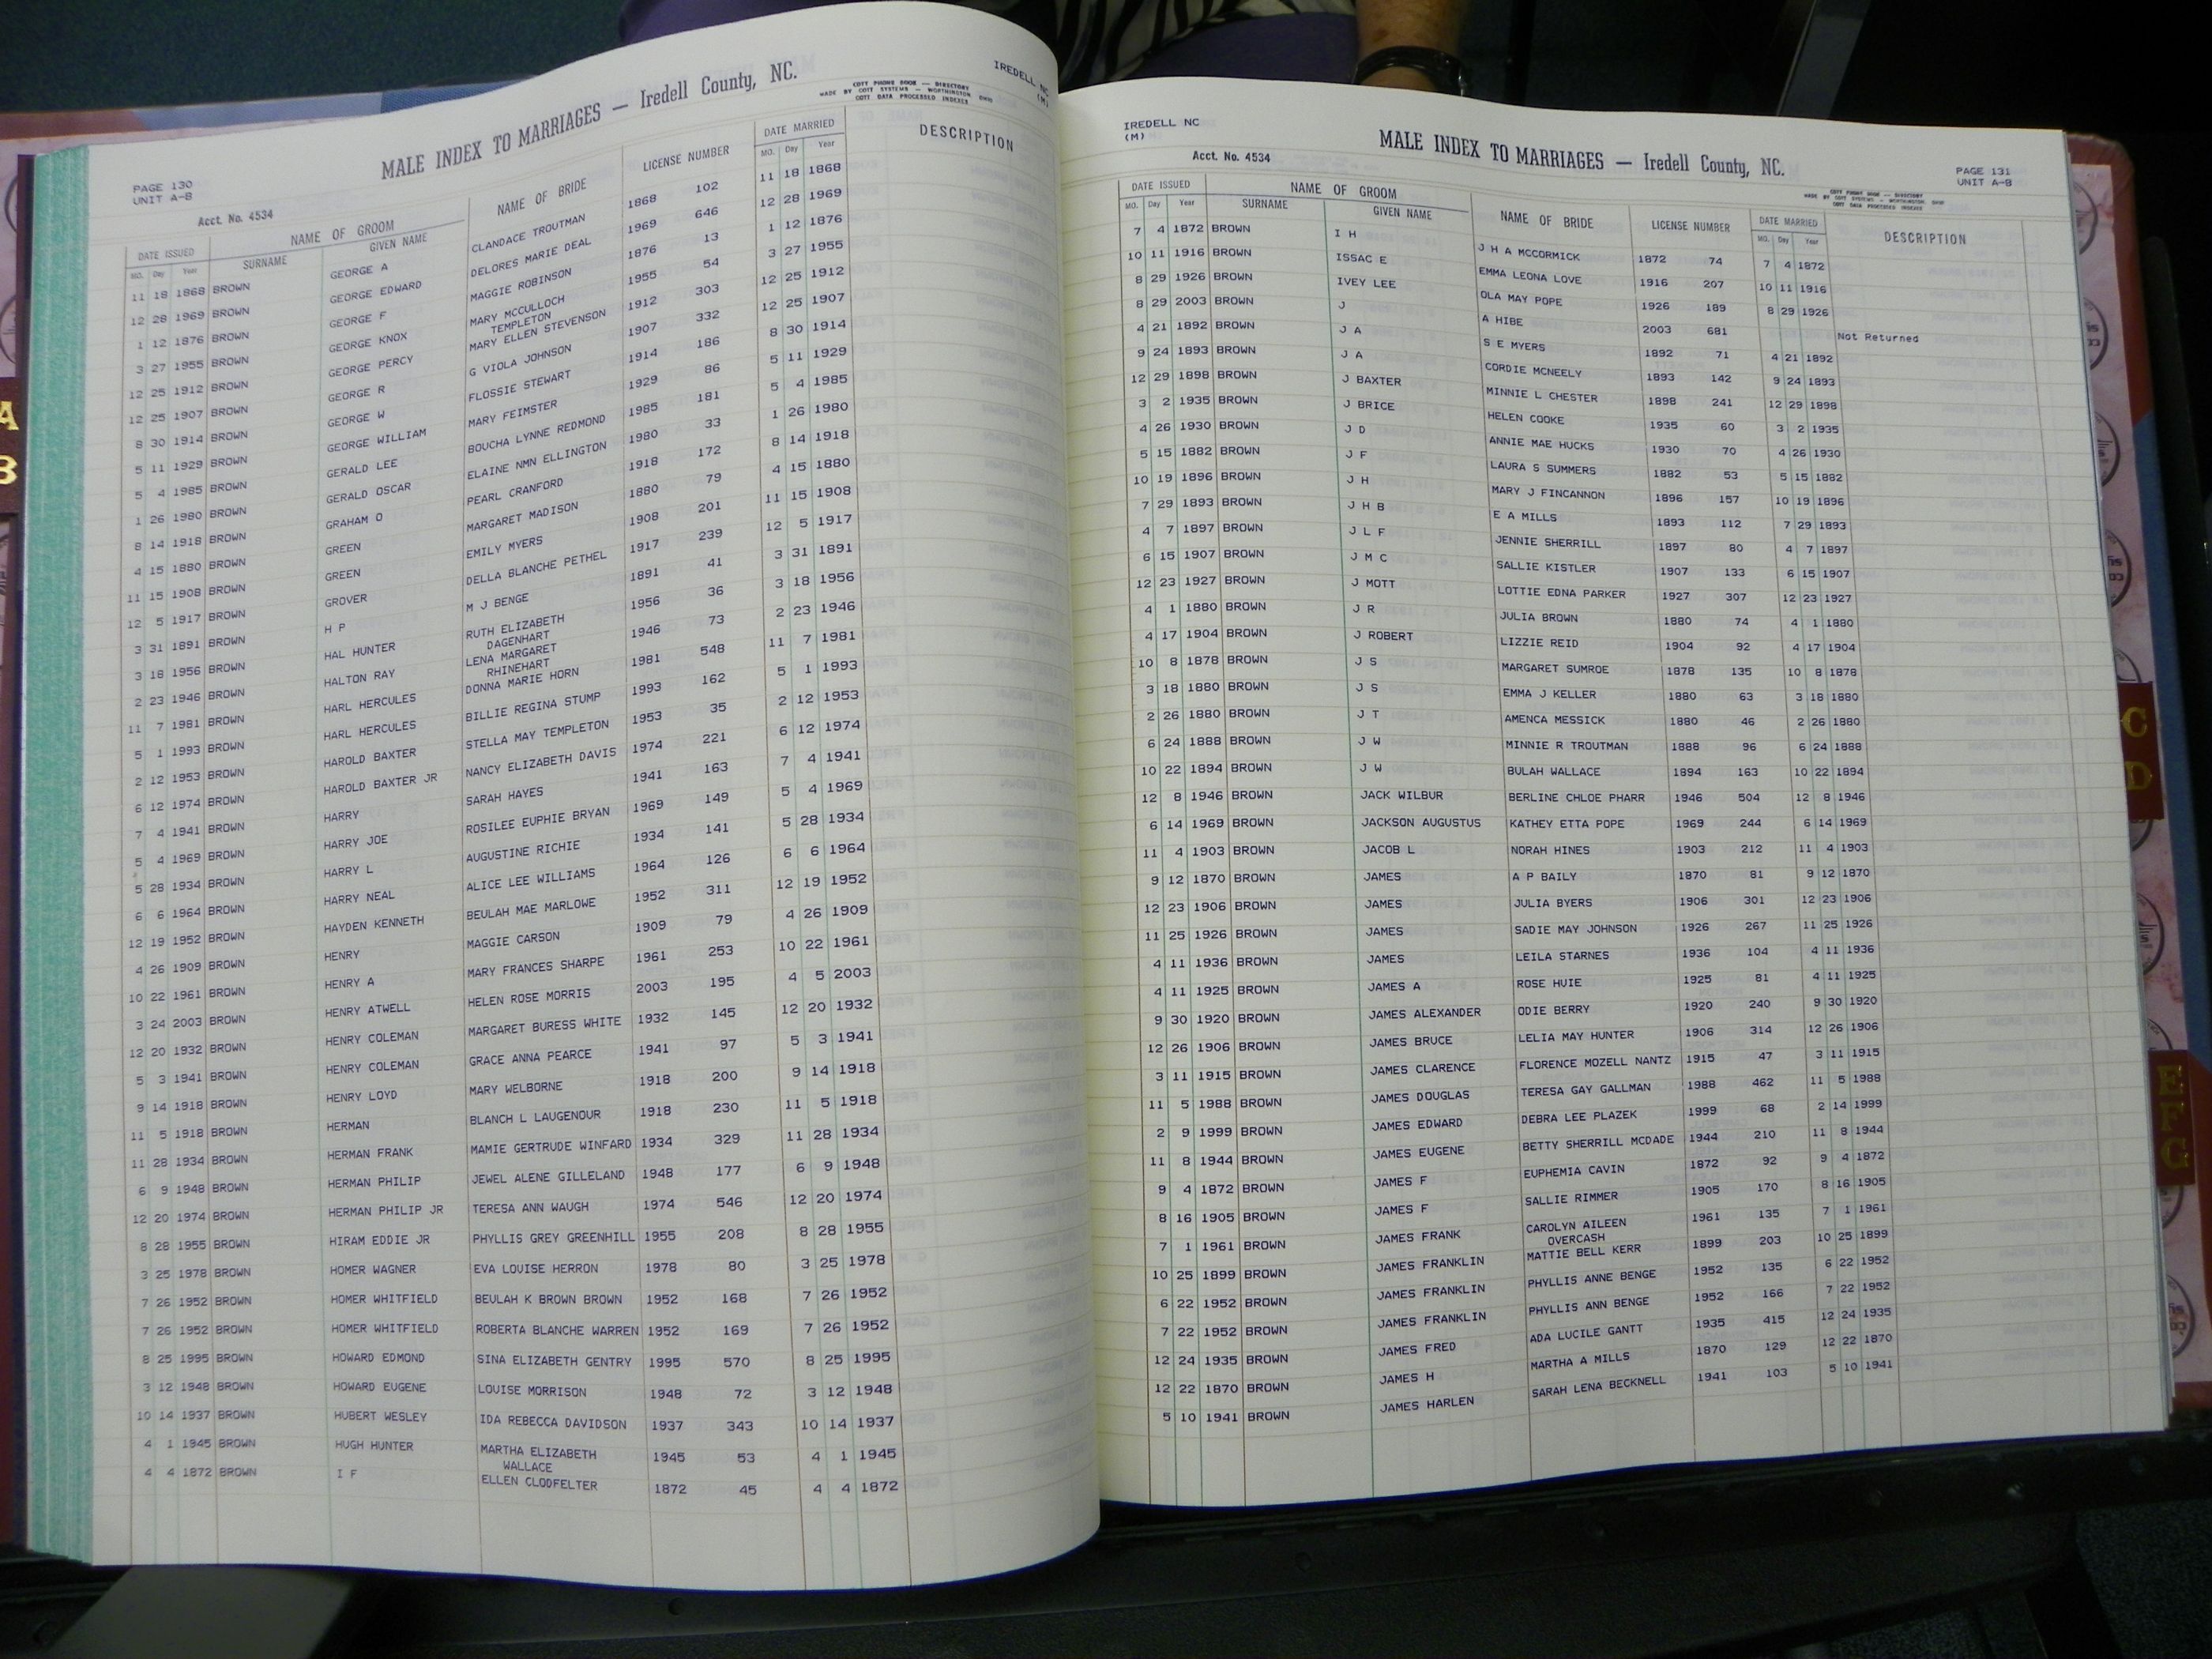 PAGE 130
UNIT A-B
MALE INDEX TO MARRIAGES — Iredell County, NC.
COTT PHONE BOOK — DIRECTORY
MADE BY COTT SYSTEMS — WORTHINGTON OHIO
COTT DATA PROCESSED INDEXER
IREDELL NC
(M)
Acct. No. 4534
DATE ISSUED NAME OF GROOM NAME OF BRIDE LICENSE NUMBER DATE MARRIED DESCRIPTION
MO. Day Year SURNAME GIVEN NAME MO. Day Year
11 18 1868 BROWN GEORGE A CLANDACE TROUTMAN 1868 102 11 18 1868
12 28 1969 BROWN GEORGE EDWARD DELORES MARIE DEAL 1969 646 12 28 1969
1 12 1876 BROWN GEORGE F MAGGIE ROBINSON 1876 13 1 12 1876
3 27 1955 BROWN GEORGE KNOX MARY MCCULLOCH 1955 54 3 27 1955
TEMPLETON
12 25 1912 BROWN GEORGE PERCY MARY ELLEN STEVENSON 1912 303 12 25 1912
12 25 1907 BROWN GEORGE R G VIOLA JOHNSON 1907 332 12 25 1907
8 30 1914 BROWN GEORGE W FLOSSIE STEWART 1914 186 8 30 1914
5 11 1929 BROWN GEORGE WILLIAM MARY FEIMSTER 1929 86 5 11 1929
5 4 1985 BROWN GERALD LEE BOUCHA LYNNE REDMOND 1985 181 5 4 1985
1 26 1980 BROWN GERALD OSCAR ELAINE NMN ELLINGTON 1980 33 1 26 1980
8 14 1918 BROWN GRAHAM O PEARL CRANFORD 1918 172 8 14 1918
4 15 1880 BROWN GREEN MARGARET MADISON 1880 79 4 15 1880
11 15 1908 BROWN GREEN EMILY MYERS 1908 201 11 15 1908
12 5 1917 BROWN GROVER DELLA BLANCHE PETHEL 1917 239 12 5 1917
3 31 1891 BROWN H P M J BENGE 1891 41 3 31 1891
3 18 1956 BROWN HAL HUNTER RUTH ELIZABETH 1956 36 3 18 1956
DAGENHART
2 23 1946 BROWN HALTON RAY LENA MARGARET 1946 73 2 23 1946
RHINEHART
11 7 1981 BROWN HARL HERCULES DONNA MARIE HORN 1981 548 11 7 1981
5 1 1993 BROWN HARL HERCULES BILLIE REGINA STUMP 1993 162 5 1 1993
2 12 1953 BROWN HAROLD BAXTER STELLA MAY TEMPLETON 1953 35 2 12 1953
6 12 1974 BROWN HAROLD BAXTER JR NANCY ELIZABETH DAVIS 1974 221 6 12 1974
7 4 1941 BROWN HARRY SARAH HAYES 1941 163 7 4 1941
5 4 1969 BROWN HARRY JOE ROSILEE EUPHIE BRYAN 1969 149 5 4 1969
5 28 1934 BROWN HARRY L AUGUSTINE RICHIE 1934 141 5 28 1934
6 6 1964 BROWN HARRY NEAL ALICE LEE WILLIAMS 1964 126 6 6 1964
12 19 1952 BROWN HAYDEN KENNETH BEULAH MAE MARLOWE 1952 311 12 19 1952
4 26 1909 BROWN HENRY MAGGIE CARSON 1909 79 4 26 1909
10 22 1961 BROWN HENRY A MARY FRANCES SHARPE 1961 253 10 22 1961
3 24 2003 BROWN HENRY ATWELL HELEN ROSE MORRIS 2003 195 4 5 2003
12 20 1932 BROWN HENRY COLEMAN MARGARET BURESS WHITE 1932 145 12 20 1932
5 3 1941 BROWN HENRY COLEMAN GRACE ANNA PEARCE 1941 97 5 3 1941
9 14 1918 BROWN HENRY LOYD MARY WELBORNE 1918 200 9 14 1918
11 5 1918 BROWN HERMAN BLANCH L LAUGENOUR 1918 230 11 5 1918
11 28 1934 BROWN HERMAN FRANK MAMIE GERTRUDE WINFARD 1934 329 11 28 1934
6 9 1948 BROWN HERMAN PHILIP JEWEL ALENE GILLELAND 1948 177 6 9 1948
12 20 1974 BROWN HERMAN PHILIP JR TERESA ANN WAUGH 1974 546 12 20 1974
8 28 1955 BROWN HIRAM EDDIE JR PHYLLIS GREY GREENHILL 1955 208 8 28 1955
3 25 1978 BROWN HOMER WAGNER EVA LOUISE HERRON 1978 80 3 25 1978
7 26 1952 BROWN HOMER WHITFIELD BEULAH K BROWN BROWN 1952 168 7 26 1952
7 26 1952 BROWN HOMER WHITFIELD ROBERTA BLANCHE WARREN 1952 169 7 26 1952
8 25 1995 BROWN HOWARD EDMOND SINA ELIZABETH GENTRY 1995 570 8 25 1995
3 12 1948 BROWN HOWARD EUGENE LOUISE MORRISON 1948 72 3 12 1948
10 14 1937 BROWN HUBERT WESLEY IDA REBECCA DAVIDSON 1937 343 10 14 1937
4 1 1945 BROWN HUGH HUNTER MARTHA ELIZABETH 1945 53 4 1 1945
WALLACE
4 4 1872 BROWN I F ELLEN CLODFELTER 1872 45 4 4 1872
IREDELL NC
(M)
MALE INDEX TO MARRIAGES — Iredell County, NC.
PAGE 131
UNIT A-B
Acct. No. 4534
COTT PHONE BOOK — DIRECTORY
MADE BY COTT SYSTEMS — WORTHINGTON, OHIO
COTT DATA PROCESSED INDEXER
DATE ISSUED NAME OF GROOM NAME OF BRIDE LICENSE NUMBER DATE MARRIED DESCRIPTION
MO. Day Year SURNAME GIVEN NAME MO. Day Year
7 4 1872 BROWN I H J H A MCCORMICK 1872 74 7 4 1872
10 11 1916 BROWN ISSAC E EMMA LEONA LOVE 1916 207 10 11 1916
8 29 1926 BROWN IVEY LEE OLA MAY POPE 1926 189 8 29 1926
8 29 2003 BROWN J A HIBE 2003 681 Not Returned
4 21 1892 BROWN J A S E MYERS 1892 71 4 21 1892
9 24 1893 BROWN J A CORDIE MCNEELY 1893 142 9 24 1893
12 29 1898 BROWN J BAXTER MINNIE L CHESTER 1898 241 12 29 1898
3 2 1935 BROWN J BRICE HELEN COOKE 1935 60 3 2 1935
4 26 1930 BROWN J D ANNIE MAE HUCKS 1930 70 4 26 1930
5 15 1882 BROWN J F LAURA S SUMMERS 1882 53 5 15 1882
10 19 1896 BROWN J H MARY J FINCANNON 1896 157 10 19 1896
7 29 1893 BROWN J H B E A MILLS 1893 112 7 29 1893
4 7 1897 BROWN J L F JENNIE SHERRILL 1897 80 4 7 1897
6 15 1907 BROWN J M C SALLIE KISTLER 1907 133 6 15 1907
12 23 1927 BROWN J MOTT LOTTIE EDNA PARKER 1927 307 12 23 1927
4 1 1880 BROWN J R JULIA BROWN 1880 74 4 1 1880
4 17 1904 BROWN J ROBERT LIZZIE REID 1904 92 4 17 1904
10 8 1878 BROWN J S MARGARET SUMROE 1878 135 10 8 1878
3 18 1880 BROWN J S EMMA J KELLER 1880 63 3 18 1880
2 26 1880 BROWN J T AMENCA MESSICK 1880 46 2 26 1880
6 24 1888 BROWN J W MINNIE R TROUTMAN 1888 96 6 24 1888
10 22 1894 BROWN J W BULAH WALLACE 1894 163 10 22 1894
12 8 1946 BROWN JACK WILBUR BERLINE CHLOE PHARR 1946 504 12 8 1946
6 14 1969 BROWN JACKSON AUGUSTUS KATHEY ETTA POPE 1969 244 6 14 1969
11 4 1903 BROWN JACOB L NORAH HINES 1903 212 11 4 1903
9 12 1870 BROWN JAMES A P BAILY 1870 81 9 12 1870
12 23 1906 BROWN JAMES JULIA BYERS 1906 301 12 23 1906
11 25 1926 BROWN JAMES SADIE MAY JOHNSON 1926 267 11 25 1926
4 11 1936 BROWN JAMES LEILA STARNES 1936 104 4 11 1936
4 11 1925 BROWN JAMES A ROSE HUIE 1925 81 4 11 1925
9 30 1920 BROWN JAMES ALEXANDER ODIE BERRY 1920 240 9 30 1920
12 26 1906 BROWN JAMES BRUCE LELIA MAY HUNTER 1906 314 12 26 1906
3 11 1915 BROWN JAMES CLARENCE FLORENCE MOZELL NANTZ 1915 47 3 11 1915
11 5 1988 BROWN JAMES DOUGLAS TERESA GAY GALLMAN 1988 462 11 5 1988
2 9 1999 BROWN JAMES EDWARD DEBRA LEE PLAZEK 1999 68 2 14 1999
11 8 1944 BROWN JAMES EUGENE BETTY SHERRILL MCDADE 1944 210 11 8 1944
9 4 1872 BROWN JAMES F EUPHEMIA CAVIN 1872 92 9 4 1872
8 16 1905 BROWN JAMES F SALLIE RIMMER 1905 170 8 16 1905
7 1 1961 BROWN JAMES FRANK CAROLYN AILEEN 1961 135 7 1 1961
OVERCASH
10 25 1899 BROWN JAMES FRANKLIN MATTIE BELL KERR 1899 203 10 25 1899
6 22 1952 BROWN JAMES FRANKLIN PHYLLIS ANNE BENGE 1952 135 6 22 1952
7 22 1952 BROWN JAMES FRANKLIN PHYLLIS ANN BENGE 1952 166 7 22 1952
12 24 1935 BROWN JAMES FRED ADA LUCILE GANTT 1935 415 12 24 1935
12 22 1870 BROWN JAMES H MARTHA A MILLS 1870 129 12 22 1870
5 10 1941 BROWN JAMES HARLEN SARAH LENA BECKNELL 1941 103 5 10 1941
A
B
C
D
E
F
G